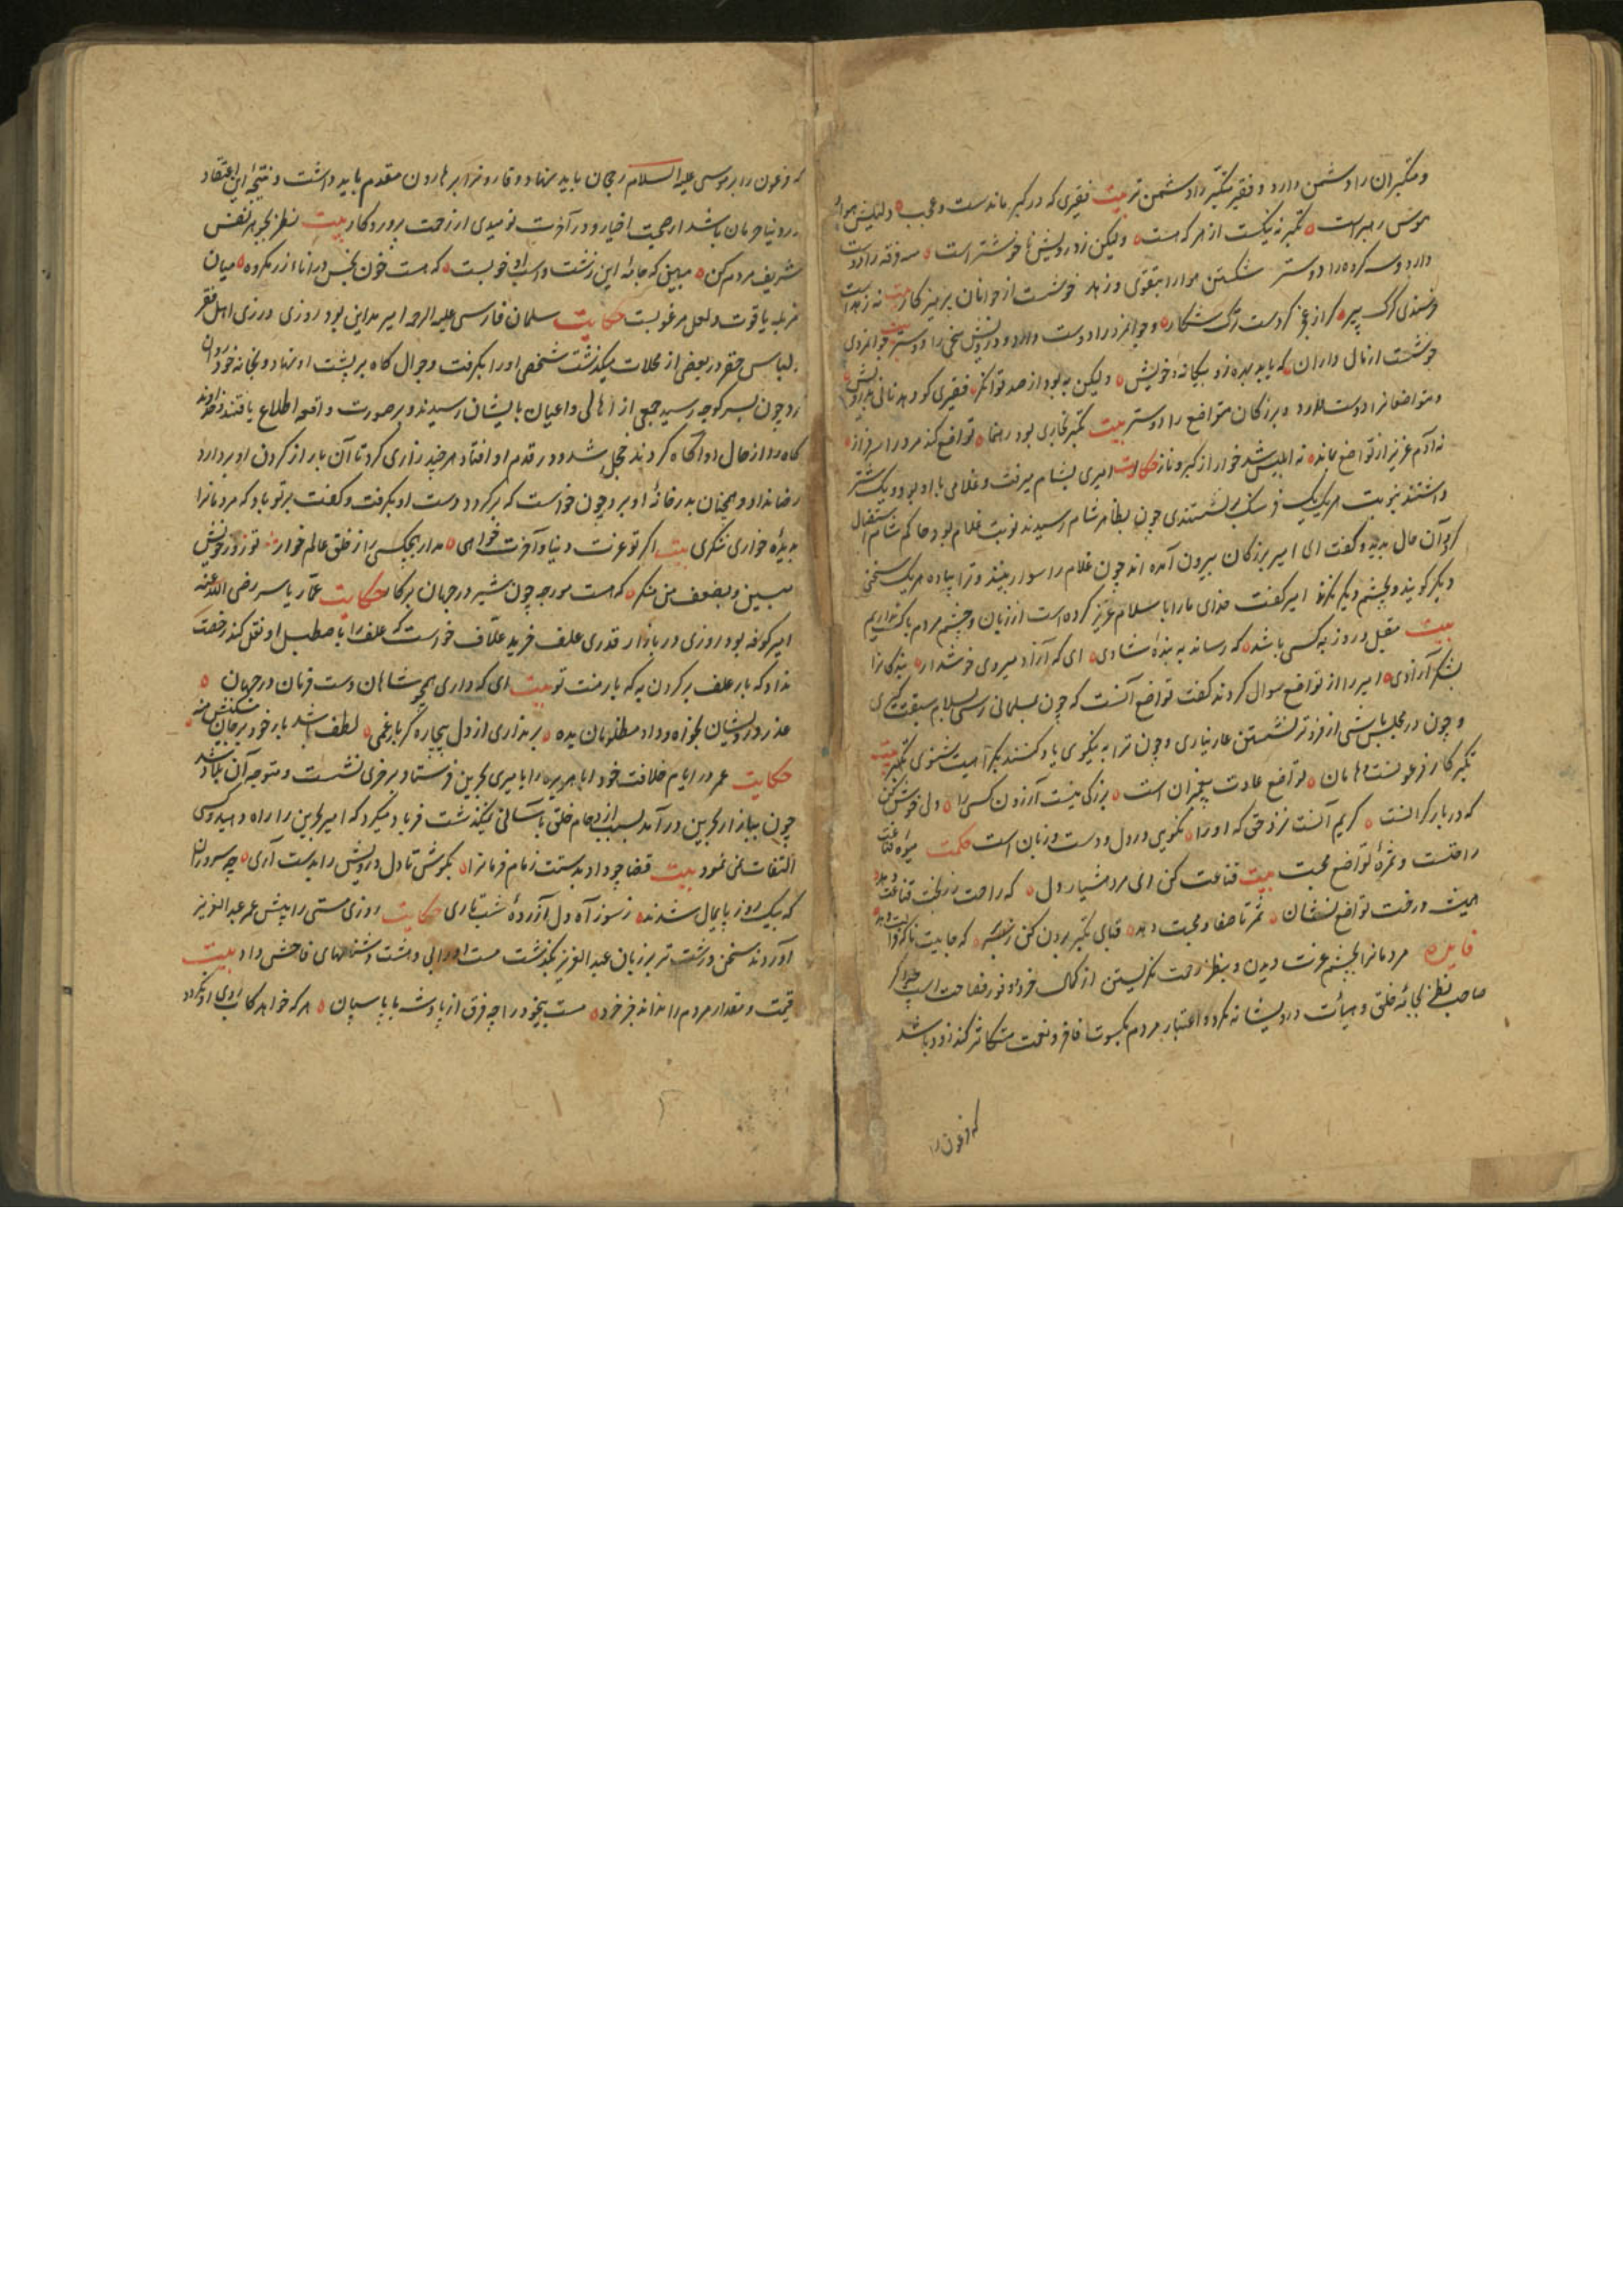 و متکبران را دشمن دارد و فقیر متکبر را دشمن تر بیت فقیری که در کبر ماندست و عجب ولیکن هوای
هوس رهبر است تکبر نه نیکست از هر که هست ولیکن ز درویش نا خوشتر است سه فرقه را دوست
دارد و سه کروه را دوستر شکستن هوا را بتقوی و زهد خوشست از جوانان پرهیزکار بیت نه زهد است
خرسندی کرک پیر که از عجز کردست ترک شکار و جوانمرد را دوست دارد و درویش سخی را دوستر بیت جوانمردی
خوشست از مال داران که یابد بهره زو بیکانه و خویش ولیکن به بود از صد توانکر فقیری کو دهد نانی بدرویش
و متواضعانرا دوست دارد و بزرکان متواضع را دوستر بیت تکبر بخاری بود رهنما تواضع کند مرد را سرفراز
نه آدم عزیز از تواضع بماند نه ابلیس شد خوار از کبر و ناز حکایت امیری بشام میرفت و غلامی با او بود و یک شتر
داشتند بنوبت هر یک یک فرسنک برنشستندی چون بظاهر شام رسیدند نوبت غلام بود حاکم شام استقبال
کرد آن حال بدید و کفت ای امیر بزرکان بیرون آمده اند چون غلام را سوار بینند و ترا پیاده هر یک سخنی
دیکر کویند و بچشم دیکر نکرند امیر کفت خدای ما را با سلام عزیز کرده است از زبان و چشم مردم باک نداریم
بیت مقبل در و روز به کسی باشد که رساند به بندهٔ شادی ای که آزاد میروی خوشدار بندکانرا
بشکر آزادی امیر را از تواضع سوال کردند کفت تواضع آنست که چون بمسلمانی رسی بسلام سبقت کیری
و چون در مجلس باشی از فروتر نشستن عار نیاری و چون ترا به نیکوی یاد کنند بکراهیت شنوی بیت
تکبر کار فرعونست و هامان تواضع عادت پیغمبران است بزرکی نیست آزردن کسی را دلی خوش کن
که در بار کرانست کریم آنست نزد حق که او را نکویی در دل و دست و زبان است حکمت میوهٔ قناعت
راحتست و ثمرهٔ تواضع محبت بیت قناعت کن ای مرد هشیار دل که راحت درخت قناعت دهد
همیشه درخت تواضع نشان ثمر تا صفا و محبت دهد قبای تکبر برون کن ز سر که جا بیت ناکه
فایده مردمانرا بچشم عزت دیدن و بنظر رحمت نکریستن از کمال خرد و وفور فصاحت است چرا که
صاحب نظر بجامهٔ خلق و هیأت درویشانه نکرد و اعتبار مردم بکسوت فاخر و نعمت متکاثر کند زود باشد
که فرعون را
که فرعون را بر موسی علیه السلام رجحان باید نهاد و قارون را بر هارون مقدم باید داشت و نتیجهٔ این اعتقاد
در دنیا حرمان باشد از صحبت اخیار و در آخرت نومیدی از رحمت پروردکار بیت نظر بجوهر نفس
شریف مردم کن مبین که جامهٔ این زشت و اسب او خوبست که هست خون نجس در اناء زر مکروه میان
خریطه یاقوت و لعل مرغوبست حکایت سلمان فارسی علیه الرحمه امیر مداین بود روزی در زی اهل فقر
بلباس حقر در بعضی از محلات میکذشت شخصی او را بکرفت و جوال کاه بر پشت او نهاد و بخانه خود روان
کرد چون بسر کوچه رسید جمعی از اهالی و اعیان بایشان رسیدند و بر صورت واقعه اطلاع یافتند و خداوند
کاه را از حال او آکاه کردند خجل شد و در قدم او افتاد هر چند زاری کرد تا آن بار از کردن او بردارد
رضا نداد و همچنان بدر خانهٔ او برد چون خواست که برکردد دست او بکرفت و کفت بر تو باد که مردمانرا
بدیدهٔ خواری ننکری بیت اکر تو عزت دنیا و آخرت خواهی مدار هیچکسی را ز خلق عالم خوار تو زور خویش
مبین و بضعف من منکر که هست مورچه چون شیر در جهان بر کار حکایت عمار یاسر رضی الله عنه
امیر کوفه بود روزی در بازار قدری علف خرید علاف خواست که علف را باصطبل او نقل کند رخصت
نداد که بار علف بر کردن به که بار منت تو بیت ای که داری همچو شاهان دست فرمان در جهان
عذر درویشان بخواه و داد مظلومان بده بر نداری از دل بیچاره کر بار غمی لطف باشد بار خود بر جان مسکینش منه
حکایت عمر در ایام خلافت خود ابا هریره را بامیری بحرین فرستاد بر خری نشست و متوجه آن بلاد شد
چون ببازار بحرین در آمد بسبب ازدحام خلق بآسانی نمیکذشت فریاد میکرد که امیر بحرین را راه دهید و کسی
التفات نمی نمود بیت قضا چو داد بدستت زمام فرمانرا بکوش تا دل درویش را بدست آری چه سروران
که بیک روز پایمال شدند ز سوز آه دل آزردهٔ شب تاری حکایت روزی مستی را پیش عمر عبد العزیز
آوردند سخن درشت تر بر زبان عبد العزیز بکذشت مست او را بی دهشت دشنامهای فاحش داد بیت
قیمت و مقدار مردم را نداند جز خرد مست بیخود را چه فرق از پادشه با پاسبان هر که خواهد کاب روی او نکردد